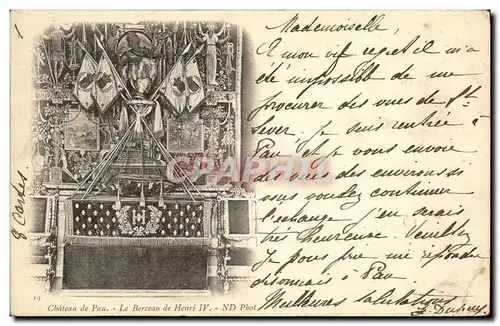 Mademoiselle,
A mon vif regret il m'a
été impossible de me
procurer des vues de St
Sever. Je suis rentrée à
Pau et je vous envoie
des vues des environs si
vous voulez continuer
l'échange j'en serais
très heureuse. Veuillez
je vous prie me répondre
à Pau
Meilleures salutations
8 Cartes
19
Château de Pau. - Le Berceau de Henri IV. - ND Phot
PHOTO CARTEXPRESS